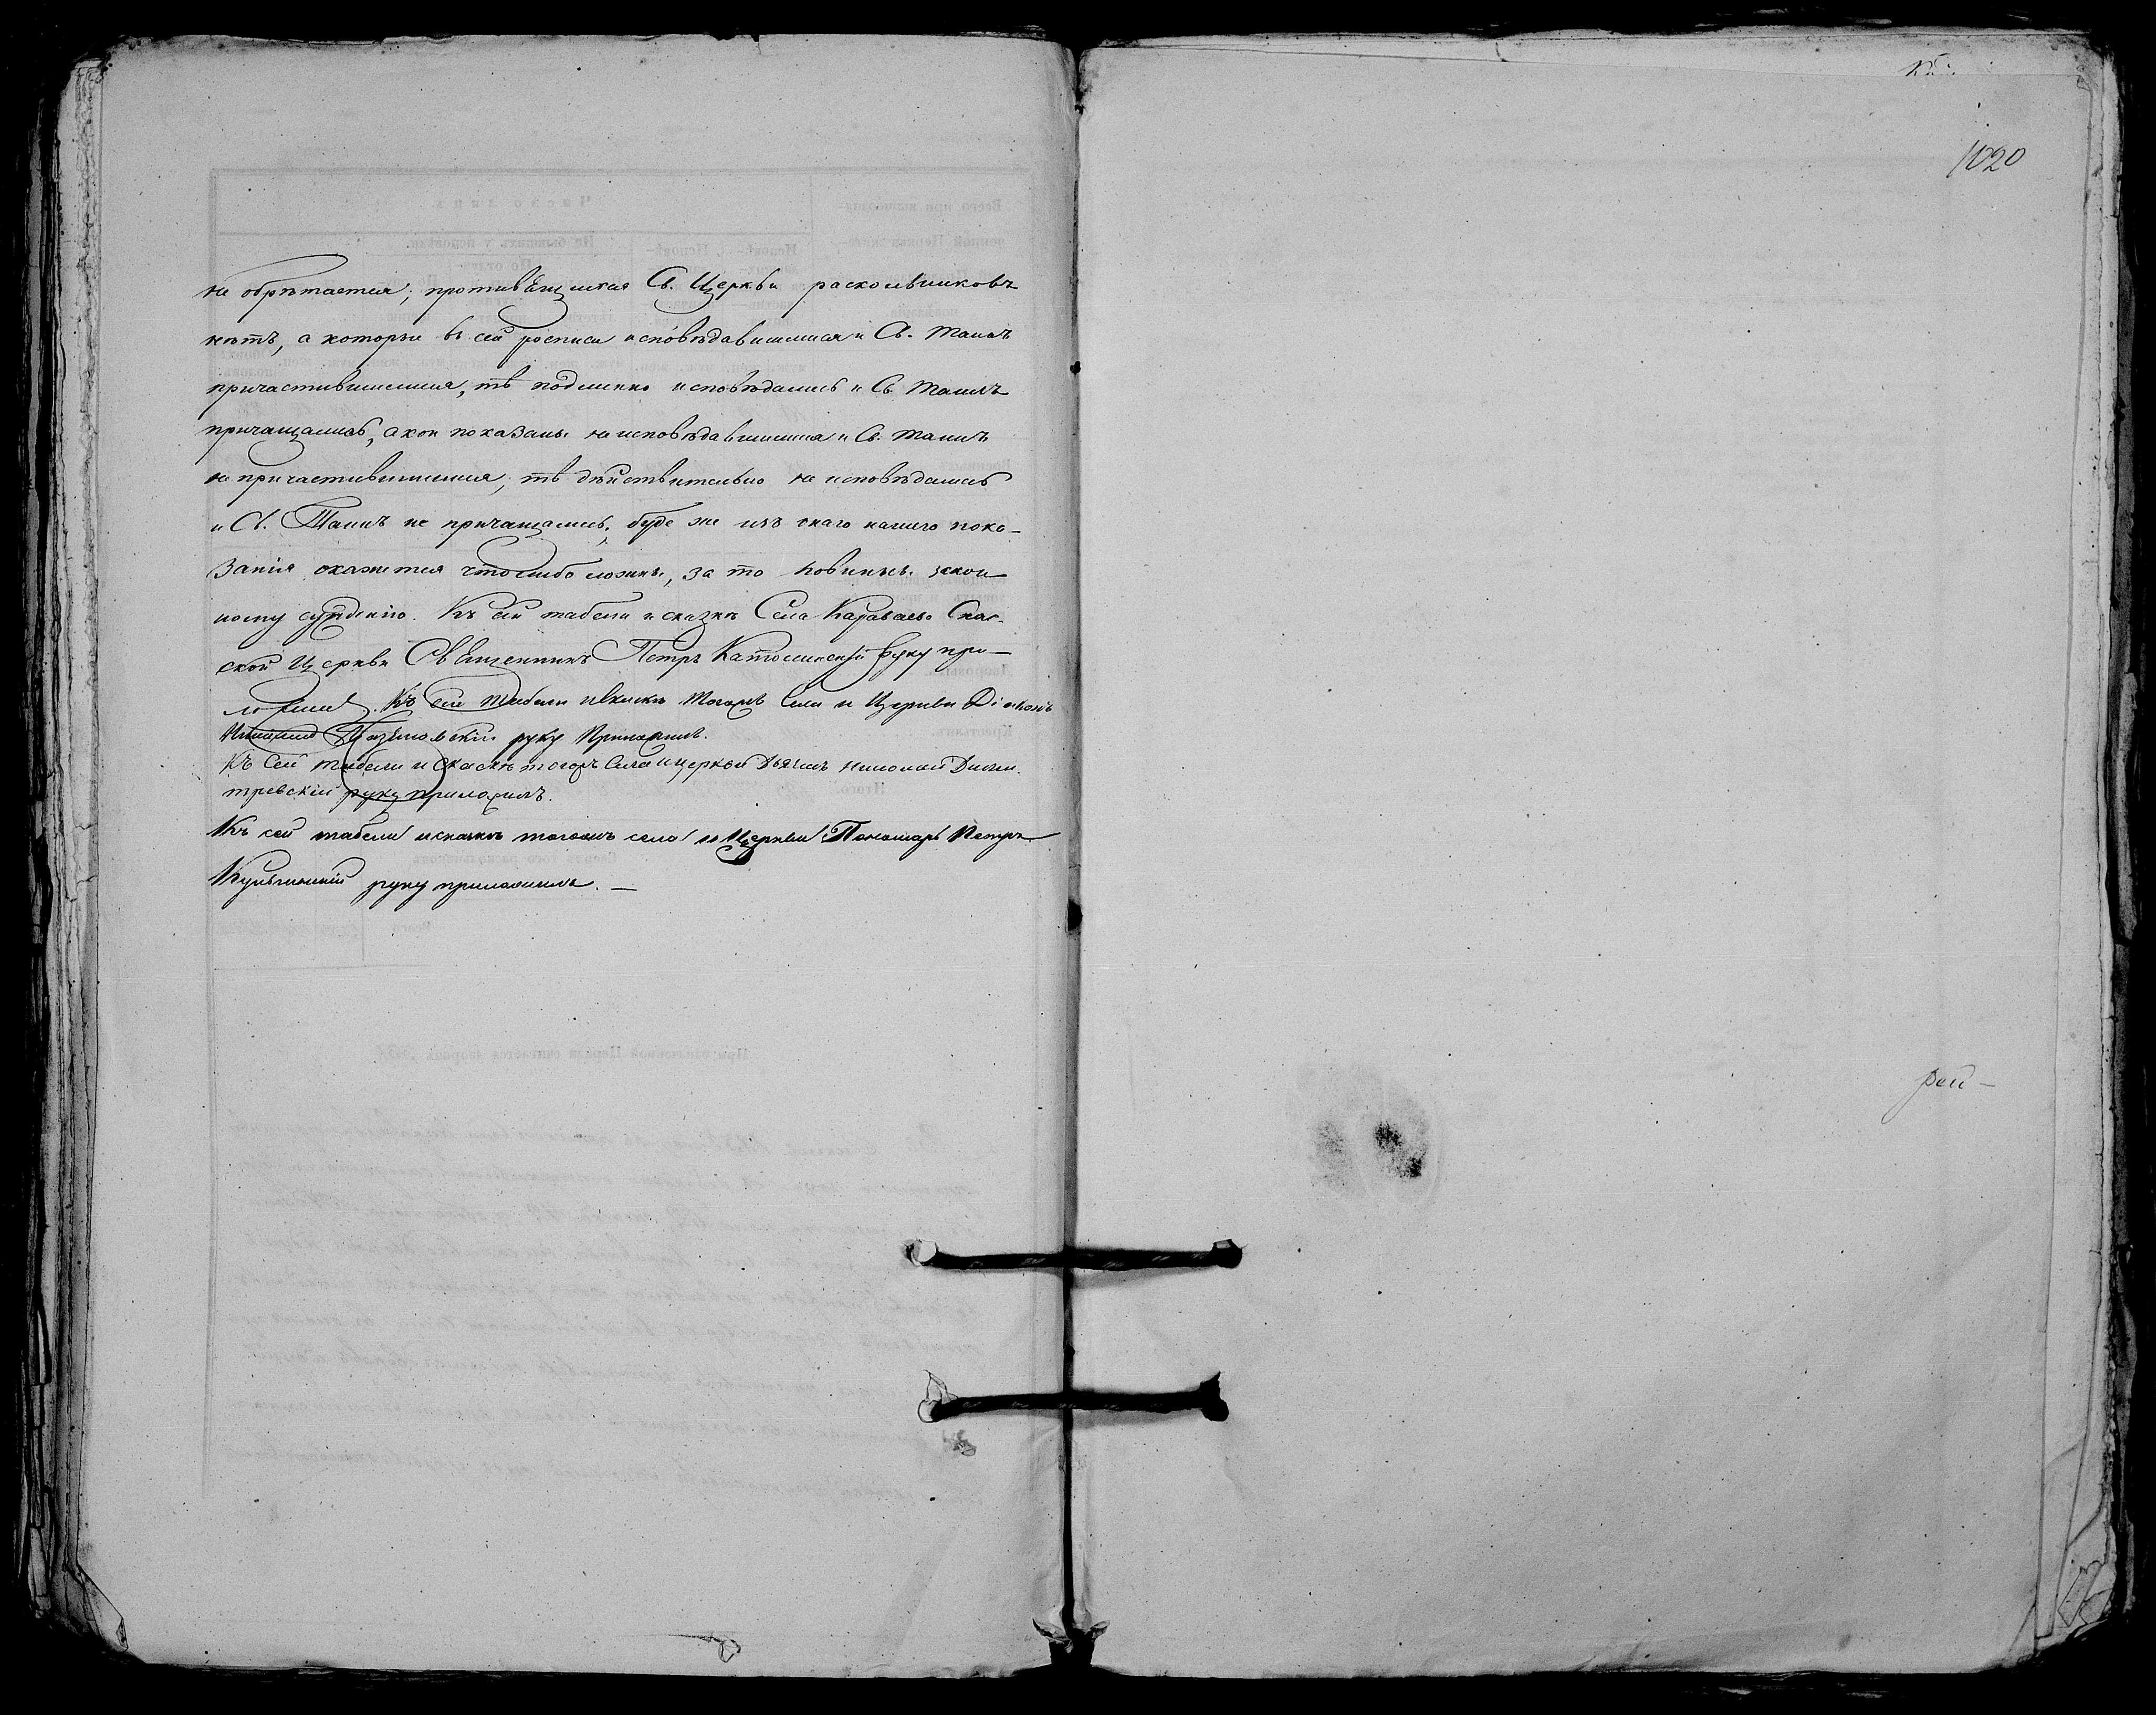 не обрѣтается; противящихся Св. Церкви раскольниковъ
нѣтъ, а которые въ сей росписи исповѣдавшимися и Св. Таинъ
причастившимися, тѣ подлинно исповѣдались и Св. Таинъ
причащались, а кои показаны не исповѣдавшимися и Св. Таинъ
не причастившимися, тѣ дѣйствительно не исповѣдались
и Св. Таинъ не причащались; буде же изъ сего нашего пока-
занія окажется что либо ложнымъ, за то повинны закон
ному сужденію. Къ сей табели и сказкѣ Села Караваева Спас-
ской Церкви Священникъ Петръ руку при-
ложилъ. Къ сей табели и скаскѣ тогожъ Села и Церкви Діаконъ
руку приложилъ.
Къ сей табели и скаскѣ тогожъ Села и церкви Дьячекъ Николай Дими
тревскій руку приложилъ.
Къ сей табели и скаскѣ тогожъ села и Церкви Пономарь Петръ
руку приложилъ. —
1020
рей-